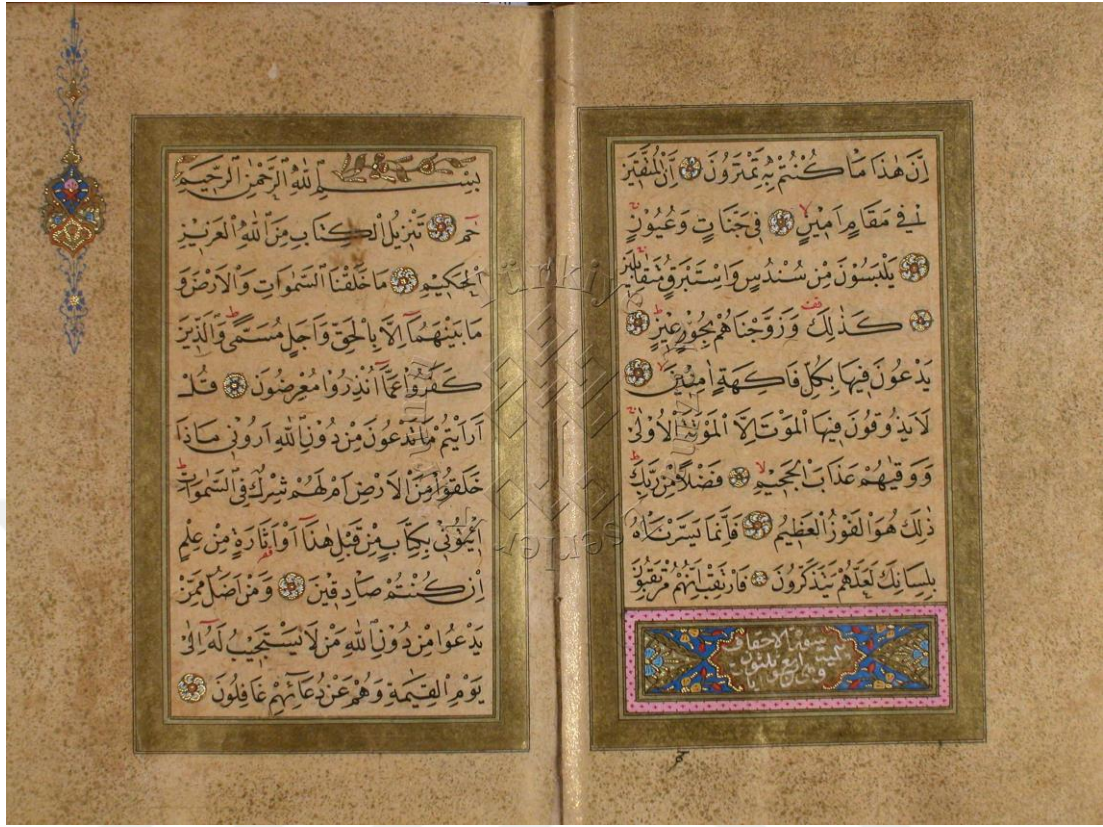 اِنَّ هٰذَا مَا كُنْتُمْ بِه۪ تَمْتَرُونَ اِنَّ الْمُتَّق۪ينَ
ف۪ي مَقَامٍ اَم۪ينٍ ف۪ي جَنَّاتٍ وَعُيُونٍ
يَلْبَسُونَ مِنْ سُنْدُسٍ وَاِسْتَبْرَقٍ مُتَقَابِل۪ينَ
كَذٰلِكَ وَزَوَّجْنَاهُمْ بِحُورٍ ع۪ينٍ
يَدْعُونَ ف۪يهَا بِكُلِّ فَاكِهَةٍ اٰمِن۪ينَ
لَا يَذُوقُونَ ف۪يهَا الْمَوْتَ اِلَّا الْمَوْتَةَ الْاُو۫لٰى
وَوَقٰيهُمْ عَذَابَ الْجَح۪يمِ فَضْلًا مِنْ رَبِّكَ
ذٰلِكَ هُوَ الْفَوْزُ الْعَظ۪يمُ فَاِنَّمَا يَسَّرْنَاهُ
بِلِسَانِكَ لَعَلَّهُمْ يَتَذَكَّرُونَ فَارْتَقِبْ اِنَّهُمْ مُرْتَقِبُونَ
سورة الاحقاف
مكية
وهي اربع وثلثون
حم
بِسْمِ اللّٰهِ الرَّحْمٰنِ الرَّح۪يمِ
حٰمٓ تَنْز۪يلُ الْكِتَابِ مِنَ اللّٰهِ الْعَز۪يزِ
الْحَك۪يمِ مَا خَلَقْنَا السَّمٰوَاتِ وَالْاَرْضَ وَ
مَا بَيْنَهُمَٓا اِلَّا بِالْحَقِّ وَاَجَلٍ مُسَمًّى وَالَّذ۪ينَ
كَفَرُوا عَمَّٓا اُنْذِرُوا مُعْرِضُونَ قُلْ
اَرَاَيْتُمْ مَا تَدْعُونَ مِنْ دُونِ اللّٰهِ اَرُون۪ي مَاذَا
خَلَقُوا مِنَ الْاَرْضِ اَمْ لَهُمْ شِرْكٌ فِي السَّمٰوَاتِ
ا۪يتُون۪ي بِكِتَابٍ مِنْ قَبْلِ هٰذَٓا اَوْ اَثَارَةٍ مِنْ عِلْمٍ
اِنْ كُنْتُمْ صَادِق۪ينَ وَمَنْ اَضَلُّ مِمَّنْ
يَدْعُوا مِنْ دُونِ اللّٰهِ مَنْ لَا يَسْتَج۪يبُ لَهُٓ اِلٰى
يَوْمِ الْقِيٰمَةِ وَهُمْ عَنْ دُعَٓائِهِمْ غَافِلُونَ